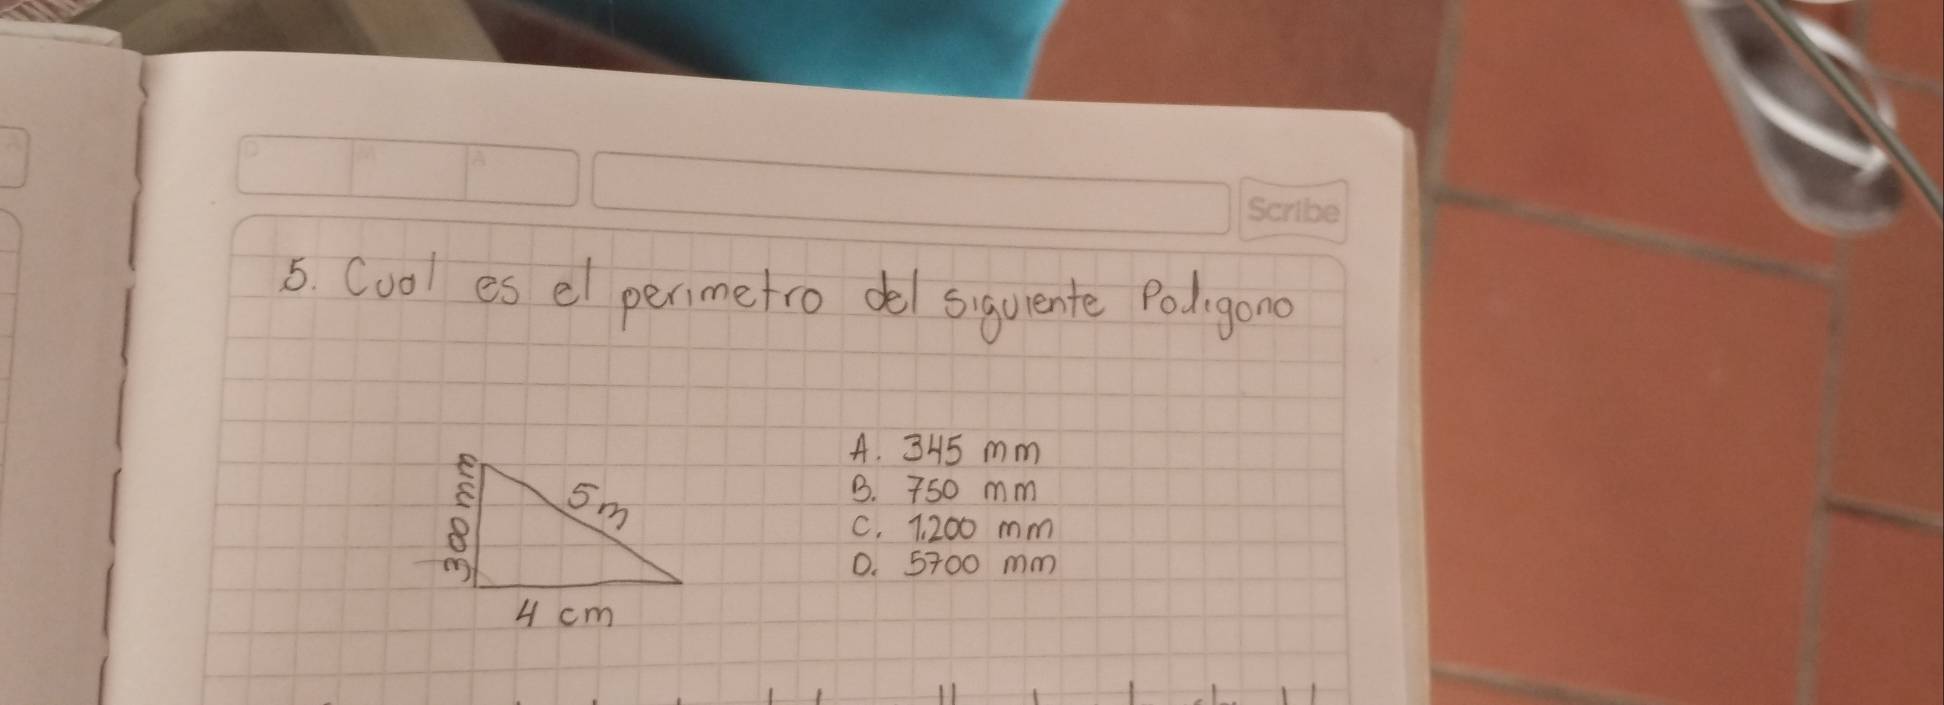 D M A
Scribe
5. Cual es el perimetro del siguiente Poligono
300 mm
5m
4 cm
A. 345 mm
B. 750 mm
C. 1.200 mm
D. 5700 mm